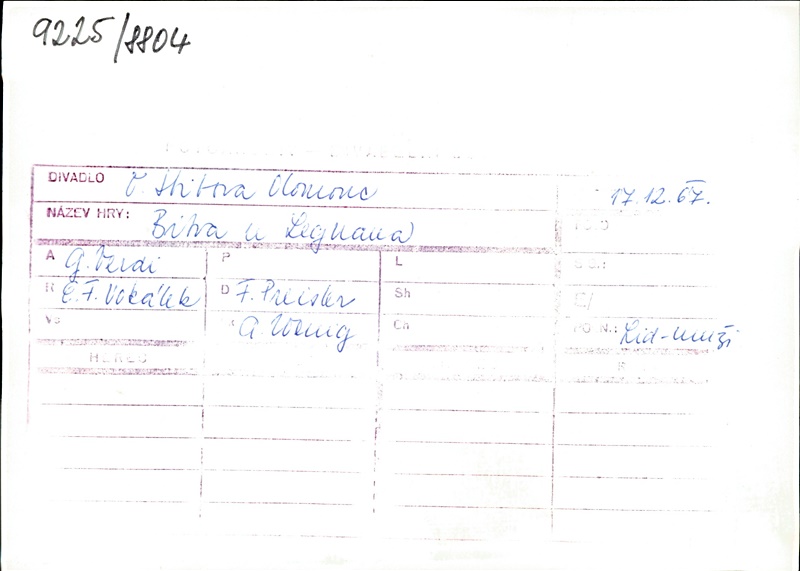 9225/8804
DIVADLO O. Stibora Olomouc 17.12.67.
NÁZEV HRY: Bitva u Legnana
A G. Verdi P L
R E. F. Vokálek D F. Preisler Sh
A. Wenig Ch PO N.: Lid-muži
HEREC